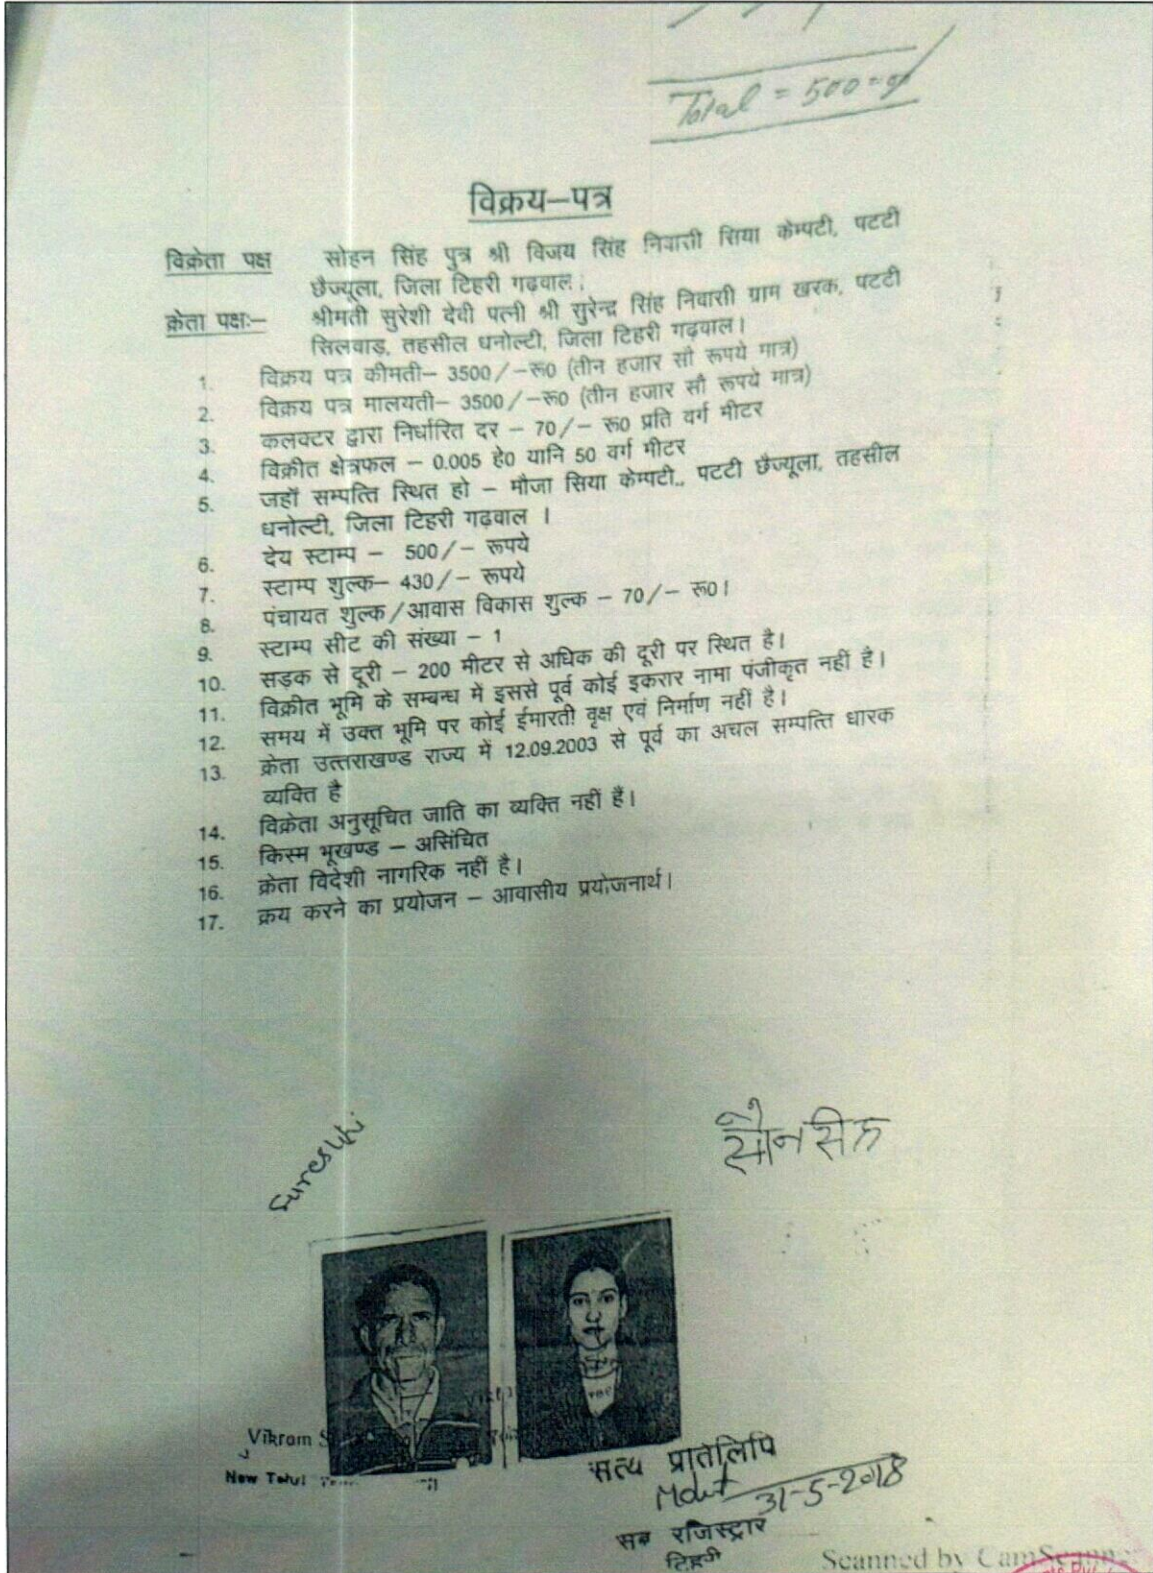 Total = 500=00
विक्रय–पत्र
विक्रेता पक्ष सोहन सिंह पुत्र श्री विजय सिंह निवासी सिया केम्पटी, पटटी
छैज्यूला, जिला टिहरी गढ़वाल।
क्रेता पक्षः– श्रीमती सुरेशी देवी पत्नी श्री सुरेन्द्र सिंह निवासी ग्राम खरक, पटटी
सिलवाड़, तहसील धनोल्टी, जिला टिहरी गढ़वाल।
1. विक्रय पत्र कीमती– 3500/–रू0 (तीन हजार सौ रूपये मात्र)
2. विक्रय पत्र मालयती– 3500/–रू0 (तीन हजार सौ रूपये मात्र)
3. कलक्टर द्वारा निर्धारित दर – 70/– रू0 प्रति वर्ग मीटर
4. विक्रीत क्षेत्रफल – 0.005 हे0 यानि 50 वर्ग मीटर
5. जहॉ सम्पत्ति स्थित हो – मौजा सिया केम्पटी,, पटटी छैज्यूला, तहसील
धनोल्टी, जिला टिहरी गढ़वाल ।
6. देय स्टाम्प – 500/– रूपये
7. स्टाम्प शुल्क– 430/– रूपये
8. पंचायत शुल्क/आवास विकास शुल्क – 70/– रू0।
9. स्टाम्प सीट की संख्या – 1
10. सड़क से दूरी – 200 मीटर से अधिक की दूरी पर स्थित है।
11. विक्रीत भूमि के सम्बन्ध में इससे पूर्व कोई इकरार नामा पंजीकृत नहीं है।
12. समय में उक्त भूमि पर कोई ईमारती वृक्ष एवं निर्माण नहीं है।
13. क्रेता उत्तराखण्ड राज्य में 12.09.2003 से पूर्व का अचल सम्पत्ति धारक
व्यक्ति है
14. विक्रेता अनुसूचित जाति का व्यक्ति नहीं हैं।
15. किस्म भूखण्ड – असिंचित
16. क्रेता विदेशी नागरिक नहीं है।
17. क्रय करने का प्रयोजन – आवासीय प्रयोजनार्थ।
Sureshi
सौन सिंह
Vikram
New Tehri
सत्य प्रतिलिपि
31-5-2018
सब रजिस्ट्रार
टिहरी
Scanned by CamScanner